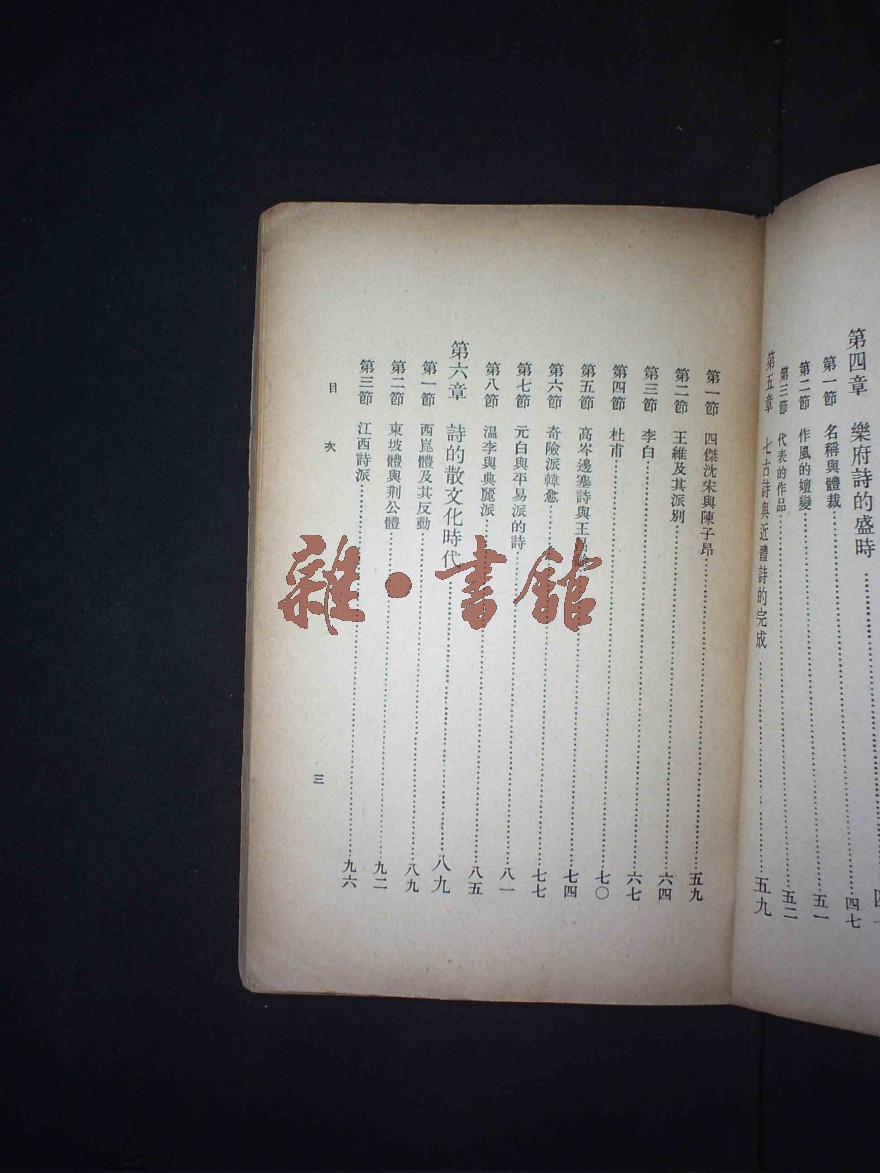 第四章 樂府詩的盛時
第一節 名稱與體裁 四七
第二節 作風的嬗變 五一
第三節 代表的作品 五二
第五章 七古詩與近體詩的完成 五九
第一節 四傑沈宋與陳子昂 五九
第二節 王維及其派別 六四
第三節 李白 六七
第四節 杜甫 七〇
第五節 高岑邊塞詩與王 七四
第六節 奇險派韓愈 七七
第七節 元白與平易派的詩 八一
第八節 溫李與典麗派 八五
第六章 詩的散文化時代 八九
第一節 西崑體及其反動 八九
第二節 東坡體與荆公體 九二
第三節 江西詩派 九六
目次
三
雜·書館